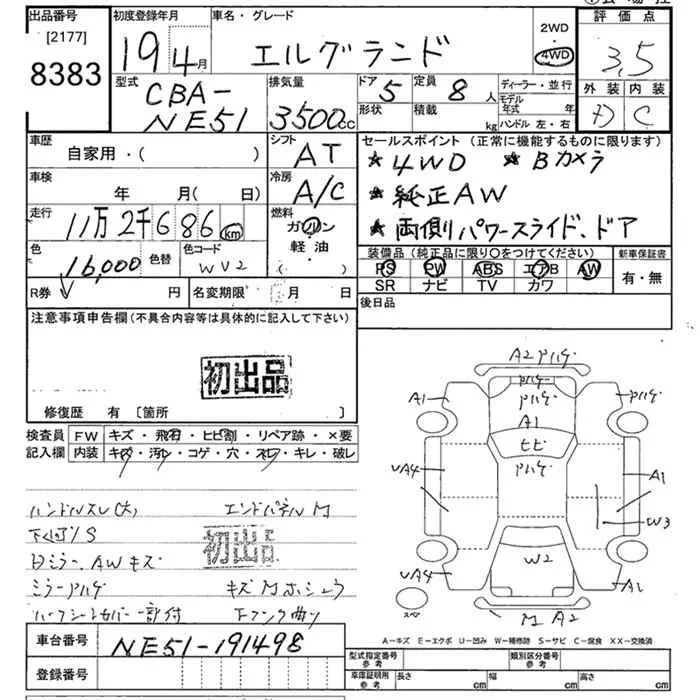 出品番号
[2177]
8383
初度登録年月
19 4月
車名・グレード
エルグランド
2WD
4WD
評価点
3,5
外装 内装
D C
型式
CBA-
NE51
排気量
3500cc
ドア 5
形状
定員 8人
積載 kg
ディーラー・並行
モデル年式 年
ハンドル 左・右
車歴
自家用・( )
シフト
AT
車検
年 月(日)
冷房
A/C
走行
11万2千686km
燃料
ガソリン
軽油
( ・ )
色
16,000
色替
色コード
WV2
R券 円
名変期限 月 日
セールスポイント(正常に機能するものに限ります)
★4WD ★Bカメラ
★純正AW
★両側パワースライド、ドア
装備品(純正品に限り○をつけてください)
PS PW ABS エアB AW
SR ナビ TV カワ
新車保証書
有・無
後日品
注意事項申告欄(不具合内容等は具体的に記入して下さい)
初出品
修復歴 有 [箇所 ]
検査員
記入欄
FW キズ・飛石・ヒビ割・リペア跡・×要
内装 キズ・汚レ・コゲ・穴・スレ・キレ・破レ
ハンドルスレ(大) エンドパネルM
下廻りS
初出品
Dミラー、AWキズ
ミラーアハゲ キズMホシュウ
ハーフシートカバー一部付 下フンク曲リ
A2アハゲ
アハゲ
アハゲ
A1
アハゲ
A1
ヒビ
アハゲ
UA4
A1
W3
W2
UA4
A1
スペア
M A2
A−キズ E−エクボ U−凹み W−補修跡 S−サビ C−腐食 XX−交換済
車台番号
NE51-191498
登録番号
型式指定番号
参考
類別区分番号
参考
車庫証明用
参考
長さ cm
幅 cm
高さ cm